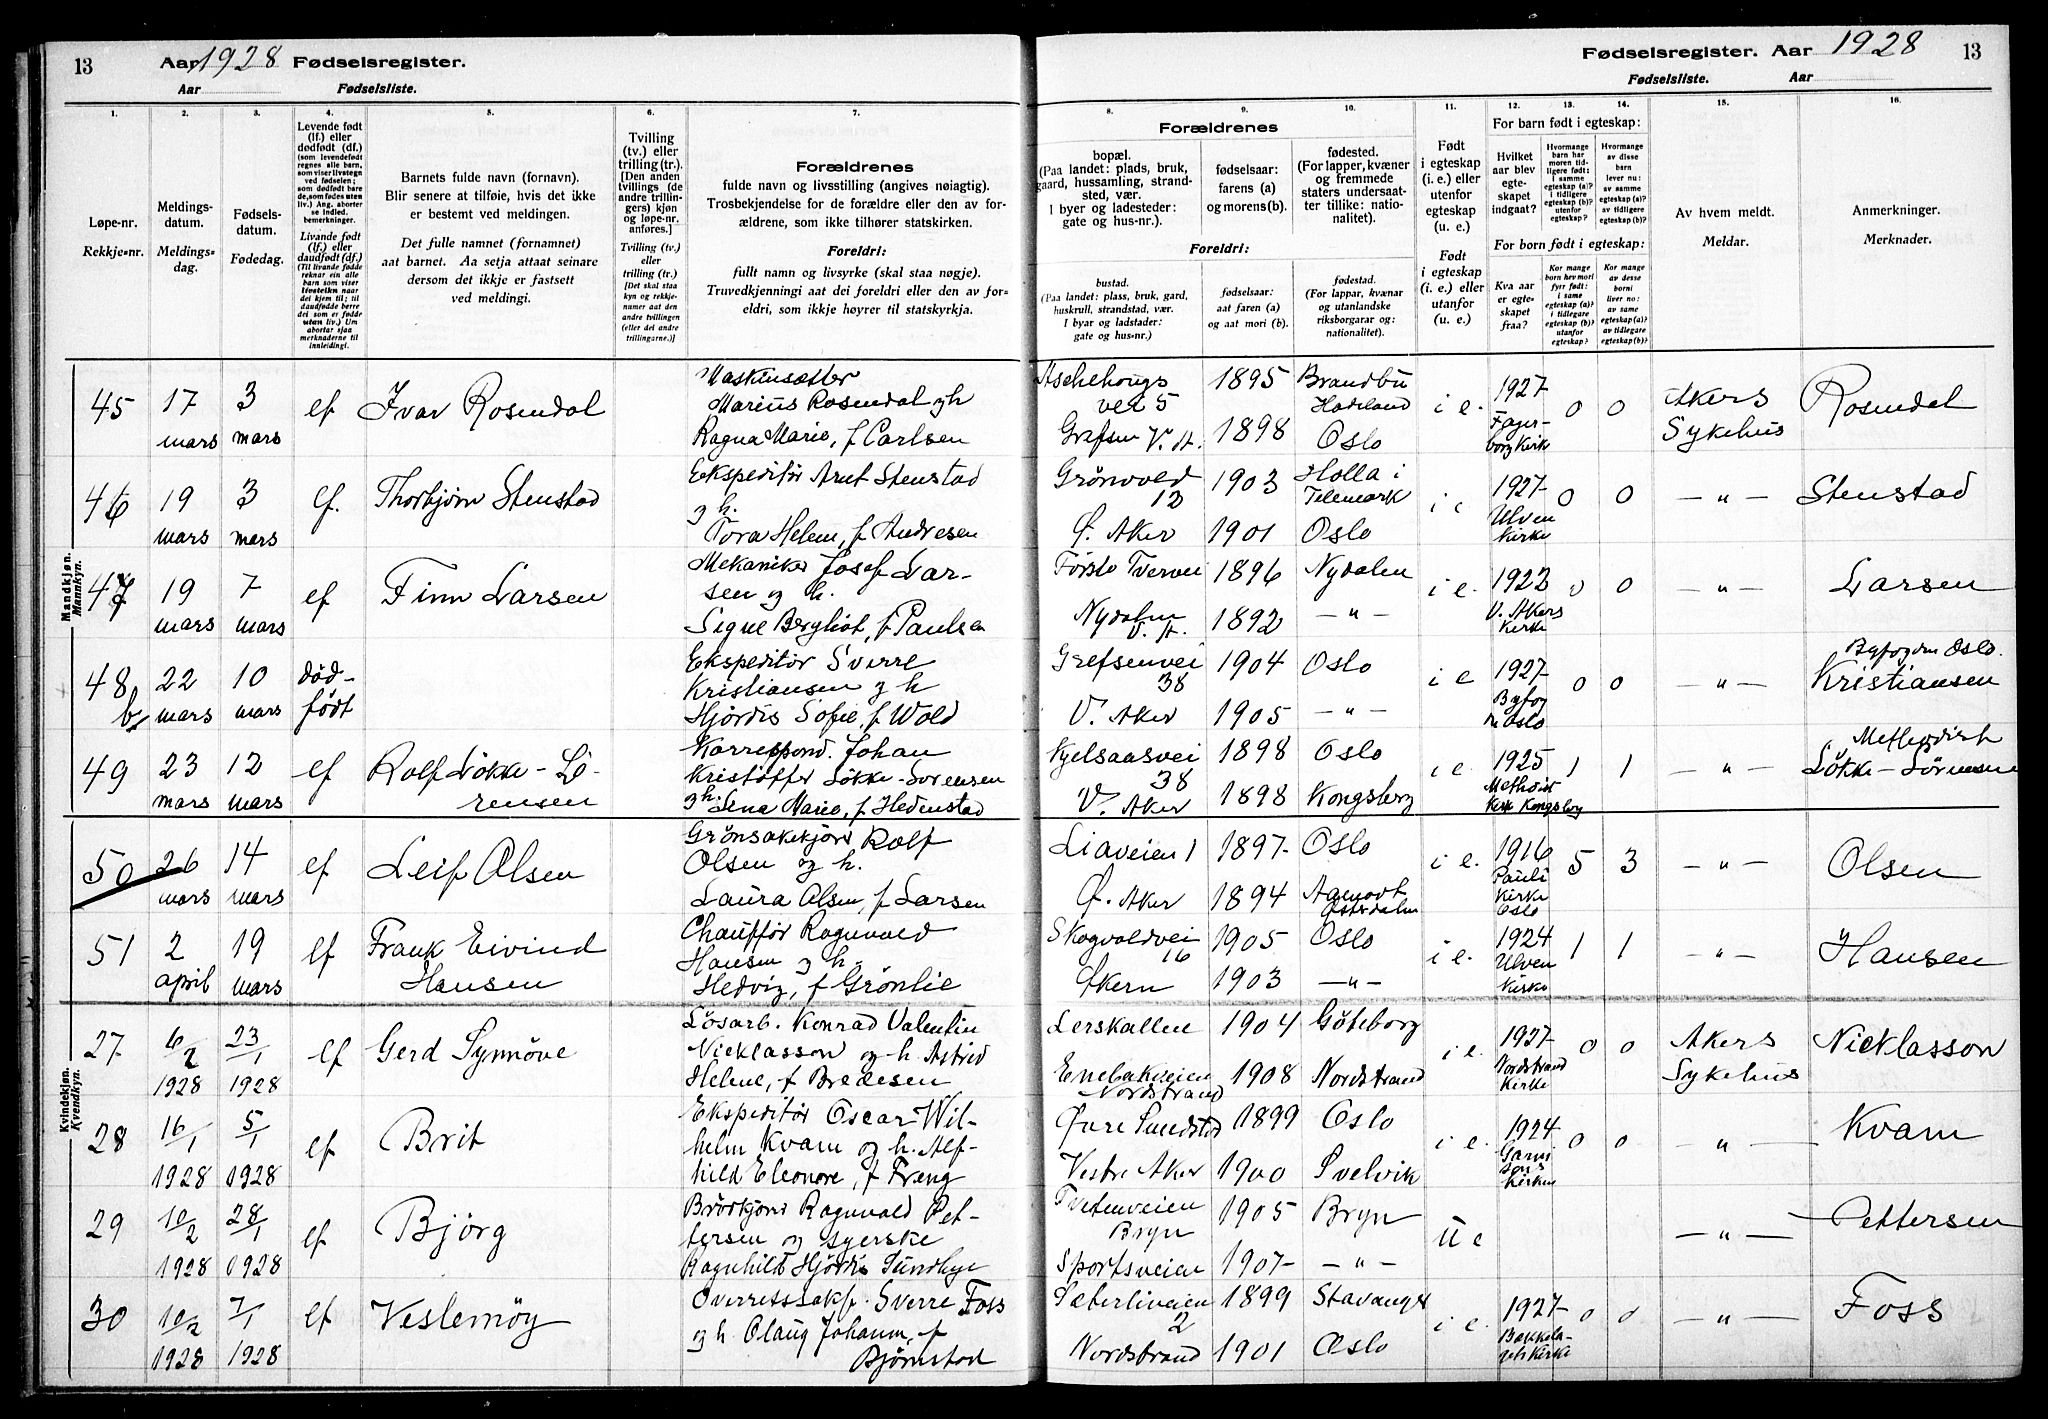 13
Aar 1928 Fødselsregister.
Aar Fødselsliste.
Fødselsregister. Aar 1928
13
Fødselsliste. Aar
1.
Løpe-nr.
Rekkje-nr.
2.
Meldings-
datum.
Meldings-
dag.
3.
Fødsels-
datum.
Fødedag.
4.
Levende født
(lf.) eller
dødfødt (df.)
(som levendefødt
regnes alle barn,
som viser livstegn
ved fødselen;
som dødfødt bare
de, som fødes uten
liv.) Ang. aborter
se indled.
bemerkninger.
Livande født
(lf.) eller
daudfødt (df.)
(Til livande fødde
reknar ein alle
barn som viser
livsteikn naar
dei kjem til; til
daudfødde berre
dei som er fødde
utan liv.) Um
abortar sjaa
merknaderne til
innleidingi.
5.
Barnets fulde navn (fornavn).
Blir senere at tilføie, hvis det ikke
er bestemt ved meldingen.
Det fulle namnet (fornamnet)
aat barnet. Aa setja attaat seinare
dersom det ikkje er fastsett
ved meldingi.
6.
Tvilling
(tv.) eller
trilling (tr.)
[Den anden
tvillings (de
andre trillin-
gers) kjøn
og løpe-nr.
anføres.]
Tvilling (tv.)
eller
trilling (tr.)
[Det skal staa
kyn og rekkje-
numer aat den
andre tvillingen
(eller dei andre
trillingarne.)]
7.
Forældrenes
fulde navn og livsstilling (angives nøiagtig).
Trosbekjendelse for de forældre eller den av for-
ældrene, som ikke tilhører statskirken.
Foreldri:
fullt namn og livsyrke (skal staa nøgje).
Truvedkjenningi aat dei foreldri eller den av for-
eldri, som ikkje høyrer til statskyrkja.
8.
Forældrenes
bopæl.
(Paa landet: plads, bruk,
gaard, hussamling, strand-
sted, vær.
I byer og ladesteder:
gate og hus-nr.).
Foreldri:
bustad.
(Paa landet: plass, bruk, gard,
huskrull, strandstad, vær.
I byar og ladstader:
gate og hus-nr.)
9.
fødselsaar:
farens (a)
og morens (b).
fødselsaar:
aat faren (a)
og aat mori (b).
10.
fødested.
(For lapper, kvæner
og fremmede
staters undersaat-
ter tillike: natio-
nalitet).
fødestad.
(For lappar, kvænar
og utanlandske
riksborgarar og:
nationalitet).
11.
Født
i egteskap
(i. e.) eller
utenfor
egteskap
(u. e.)
Født
i egteskap
(i. e.) eller
utanfor
(u. e.)
For barn født i egteskap:
12.
Hvilket
aar blev
egte-
skapet
indgaat?
For born født i egteskap:
Kva aar
er egte-
skapet
fraa?
13.
Hvormange
barn har
moren tid-
ligere født:
i samme
egteskap (a)?
i tidligere
egteskap (b)?
utenfor
egteskap?
Kor mange
born hev mori
fyrr født:
i same
egteskap (a)?
i tidlegare
egteskap (b)?
utanfor
egteskap?
14.
Hvormange
av disse
barn
lever nu:
av samme
egteskap (a)?
av tidligere
egteskap (b)?
Kor mange
av desse
borni
liver no:
av same
egteskap (a)?
av tidlegare
egteskap (b)?
15.
Av hvem meldt.
Meldar.
16.
Anmerkninger.
Merknader.
Mandkjøn.
Mannkyn.
45 17 mars 3 mars lf Ivar Rosendal
Maskinsetter
Marius Rosendal og h
Ragna Marie, f Carlsen
Aschehougs
vei 5
Grefsen V. A.
1895
1898
Brandbu
Hadeland
Oslo
i e. 1927
Fager-
borg Kirk
0 0 Akers
Sykehus
Rosendal
46 19 mars 3 mars lf. Thorbjørn Stenstad
Ekspeditør Arnt Stenstad
og h.
Tora Helene, f Andresen
Grønvold
12
Ø. Aker
1903
1901
Holla i
Telemark
Oslo
i e 1927
Ulven
Kirke
0 0 — „ — Stenstad
47 19 mars 7 mars lf Finn Larsen
Mekaniker Josef Lar-
sen og h.
Signe Bergliot, f Paulsen
Tvervei
Nydalen
V. A.
1896
1892
Nydalen
— „ —
i e. 1922
V. Akers
Kirke
0 0 — „ — Larsen
48 b 22 mars 10 mars død-
født
Ekspeditør Sverre
Kristiansen og h
Hjørdis Sofie, f Wold
Grefsenvei
38
V. Aker
1904
1905
Oslo
— „ —
i e 1927
Byfog
Oslo
0 0 — „ —
Oslo.
Kristiansen
49 23 mars 12 mars lf Rolf Løkke-
Korrespond. Johan
Kristoffer Løkke-Sørensen
og h Lena Marie, f Hedenstad
Kjelsaasvei
38
V. Aker
1898
1898
Oslo
Kongsberg
i e 1925
Methodist
Kirk Kongsberg
1 1 — „ —
Methodist
Løkke-Sørensen
50 26 mars 14 mars lf Leif Olsen
Grønsakkjører Rolf
Olsen og h.
Laura Olsen, f Larsen
Liaveien 1
Ø. Aker
1897
1894
Oslo
Aamodt
Østerdalen
i e. 1916
Pauli
Kirke
Oslo
5 3 — „ — Olsen
51 2 april 19 mars lf Frank Eivind
Hansen
Chauffør Ragnvald
Hansen og h.
Hedvig, f Grønlie
Skogvoldvei
16
Økern
1905
1903
Oslo
— „ —
i e. 1924
Ulven
Kirke
1 1 — „ — Hansen
Kvindekjøn.
Kvendkyn.
27 6/2 1928 23/1 1928 lf Gerd Synnöve
Løsarb. Konrad Valentin
Nicklasson og h. Astrid
Helene, f Bredesen
Lerskallen
Enebakveien
Nordstrand
1904
1908
Göteborg
Nordstrand
i e. 1927
Nordstrand
Kirke
0 0 Akers
Sykehus
Nicklasson
28 16/1 1928 5/1 1928 lf Brit
Ekspeditør Oscar Wil-
helm Kvam og h. Alf-
hild Eleonore, f Freng
Øvre
Vestre Aker
1899
1900
Oslo
Svelvik
i e. 1924
Garni
sons
Kirken
0 0 — „ — Kvam
29 10/2 1928 28/1 1928 lf Bjørg
Brødkjører Ragnvald Pet-
tersen og syerske
Ragnhild Hjørdis Sundbye
Tvetenveien
Bryn
Sportsveien
1905
1907
Bryn
— „ —
u e — „ — Pettersen
30 10/2 1928 7/1 1928 lf Veslemøy
Overrettssakf. Sverre Foss
og h. Olaug Johanne, f
Bjørnstad
Sæterliveien
2
Nordstrand
1899
1901
Stavanger
Oslo
i e. 1927
Bekkela-
gets Kirke
0 0 — „ — Foss